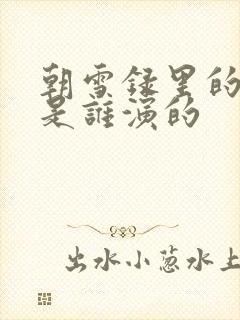 朝雪録里的
是誰演的
出水小葱水上